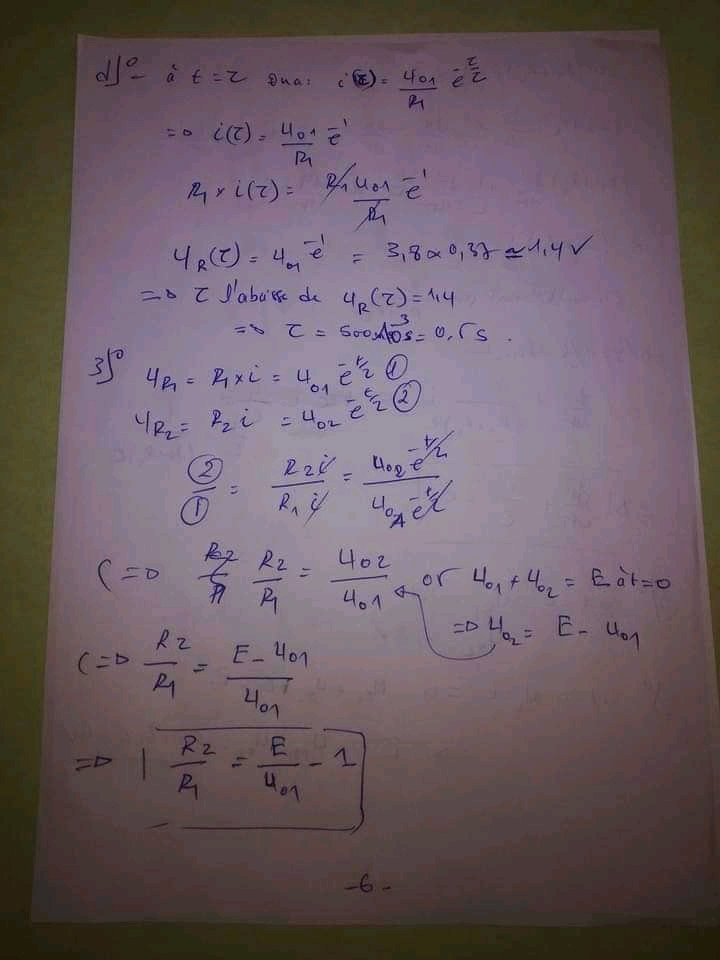 d)° - à t = τ on a : i(τ) = U01/R1 e^-τ/τ
=> i(τ) = U01/R1 e^-1
R1 × i(τ) = R1 U01/R1 e^-1
UR(τ) = U01 e^-1 = 3,8 × 0,37 ≃ 1,4 V
=> τ l'abscisse de UR(τ) = 1,4
=> τ = 500×10^-3 s = 0,5 s .
3)° UR1 = R1 × i = U01 e^-t/τ ①
UR2 = R2 i = U02 e^-t/τ ②
②/① = R2 i/R1 i = U02 e^-t/τ/U01 e^-t/τ
(=> R2/R1 = U02/U01 or U01 + U02 = E à t = 0
=> U02 = E - U01
(=> R2/R1 = E - U01/U01
=> R2/R1 = E/U01 - 1
-6-